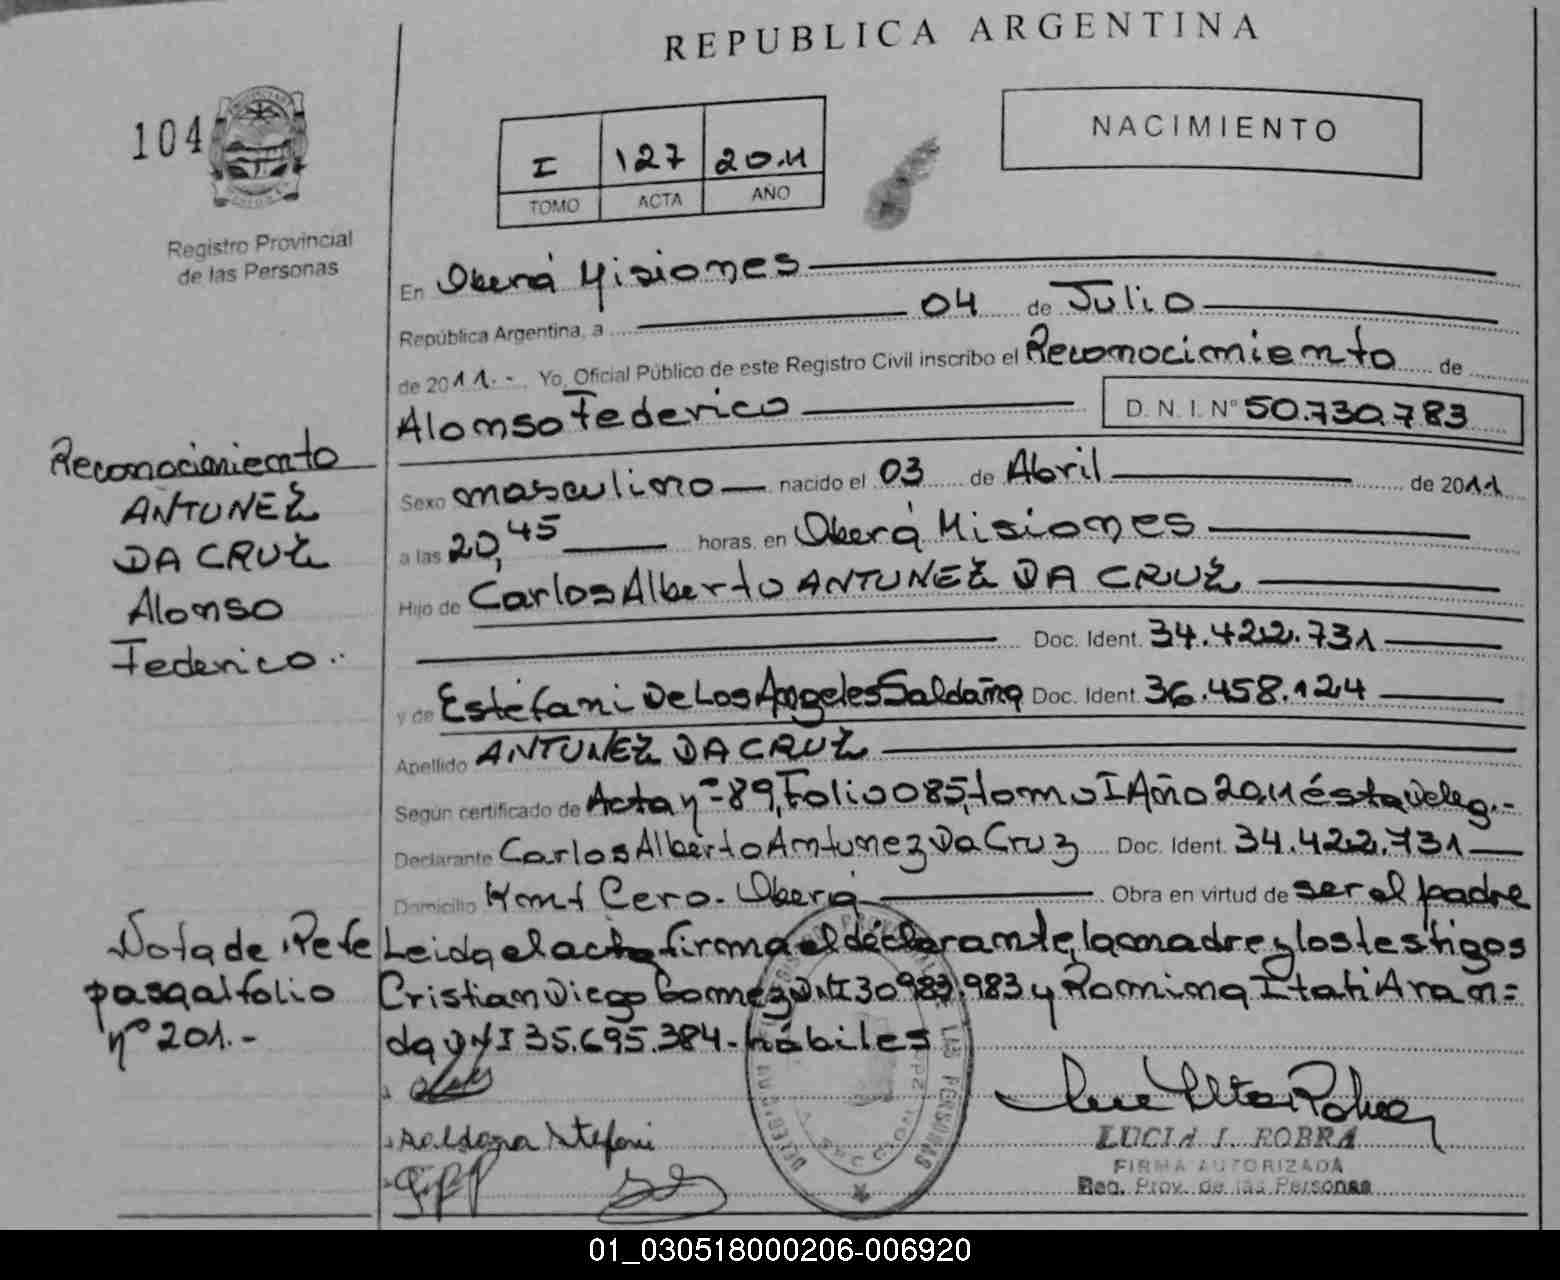 REPUBLICA ARGENTINA
104
Registro Provincial
de las Personas
I 127 2011
TOMO ACTA AÑO
NACIMIENTO
En Oberá Misiones
República Argentina, a 04 de Julio
de 2011.- Yo, Oficial Público de este Registro Civil inscribo el Reconocimiento de
Alonso Federico D. N. I. Nº 50.730.783
Sexo masculino nacido el 03 de Abril de 2011
a las 20,45 horas, en Oberá Misiones
Hijo de Carlos Alberto ANTUNEZ DA CRUZ
Doc. Ident. 34.422.731
y de Estéfani De Los Angeles Saldaña Doc. Ident. 36.458.124
Apellido ANTUNEZ DA CRUZ
Según certificado de Acta nº 89, Folio 085, tomo I Año 2011 ésta Deleg.-
Declarante Carlos Alberto Antunez Da Cruz Doc. Ident. 34.422.731
Domicilio Kmt Cero - Oberá Obra en virtud de ser el padre
Leida el acta firma el declarante, la madre y los testigos
Cristian Diego Gomez DNI 30.983.983 y Romina Itati Aran=
da DNI 35.695.384 - hábiles
Reconocimiento
ANTUNEZ
DA CRUZ
Alonso
Federico.-
Nota de Refe
pasa al folio
nº 201.-
Saldaña Stefani
LUCIA I. ROBRA
FIRMA AUTORIZADA
Reg. Prov. de las Personas
01_030518000206-006920